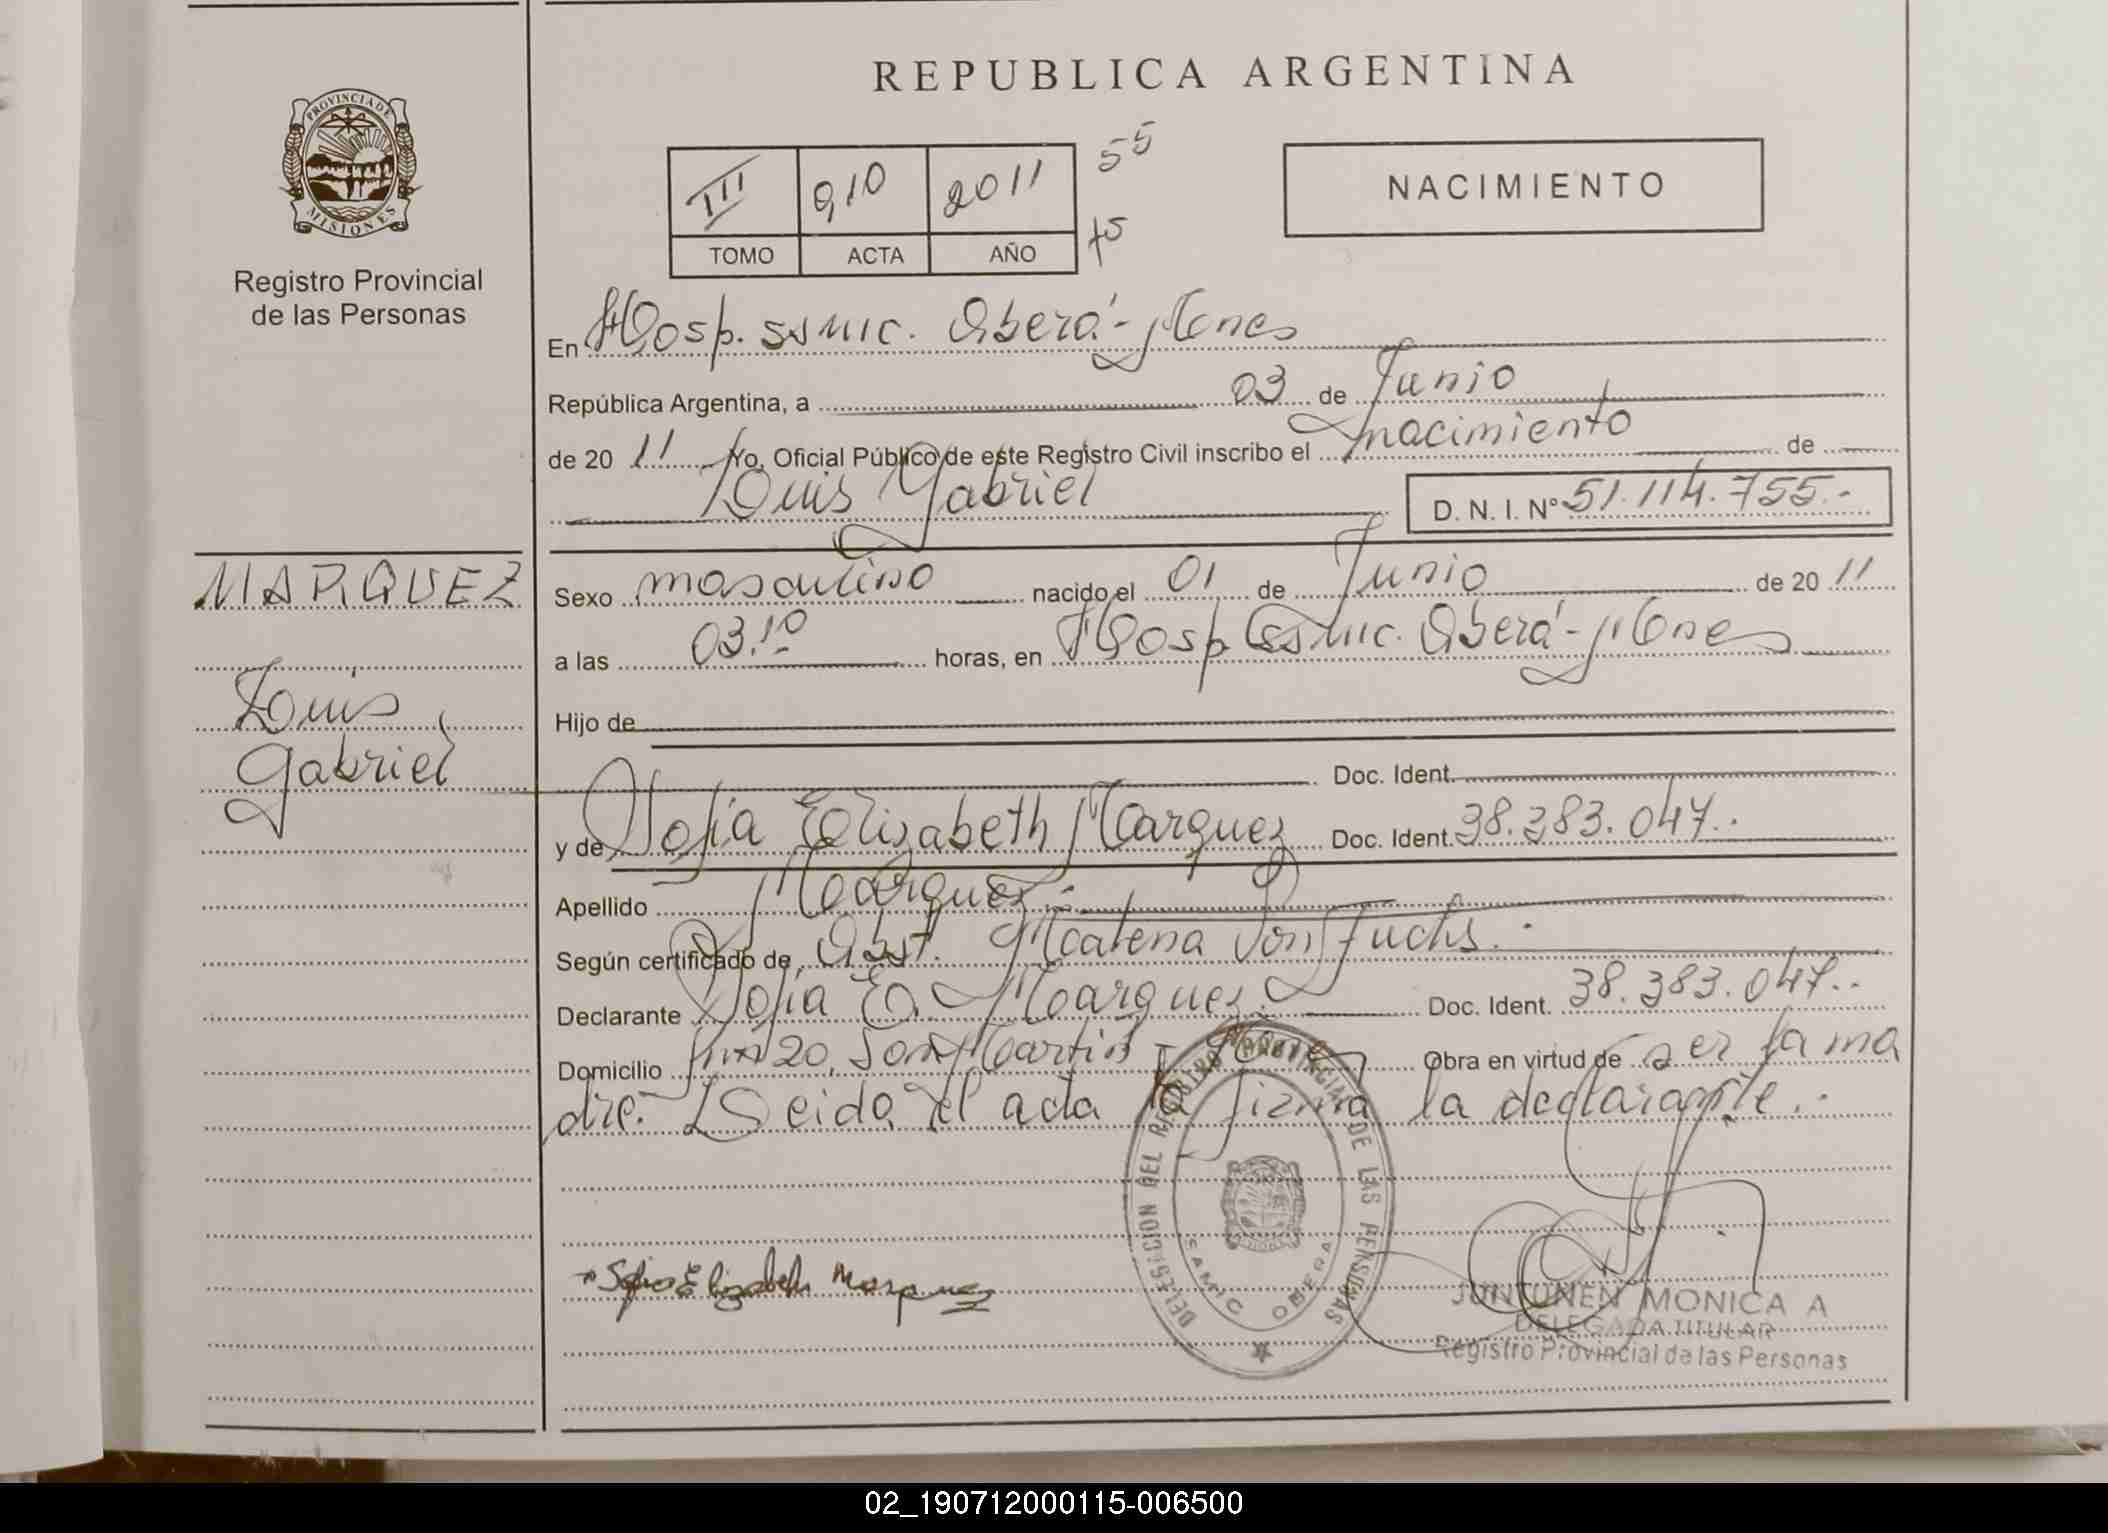 REPUBLICA ARGENTINA
PROVINCIA DE
MISIONES
Registro Provincial
de las Personas
III 910 2011 55
TOMO ACTA AÑO 75
NACIMIENTO
En Hosp. SSMIC. Oberá - Mnes
República Argentina, a 03 de Junio
de 20 11 Yo, Oficial Público de este Registro Civil inscribo el nacimiento de
Luis Gabriel
D. N. I. Nº 51.114.755.-
MARQUEZ
Luis
Gabriel
Sexo masculino nacido el 01 de Junio de 20 11
a las 03.10 horas, en Hosp. SSMIC. Oberá - Mnes
Hijo de
Doc. Ident.
y de Sofia Elizabeth Marquez Doc. Ident. 38.383.047..
Apellido Marquez.-
Según certificado de Obst. Macarena Von Fuchs.-
Declarante Sofia E. Marquez. Doc. Ident. 38.383.047..
Domicilio 20, San Martin - Obra en virtud de ser la ma
dre. Leida el acta la firma la declarante..
Sofia Elizabeth Marquez
DELEGACION DEL REGISTRO PROVINCIAL DE LAS PERSONAS
SAMIC OBERA
JUNTUNEN MONICA A
DELEGADA TITULAR
Registro Provincial de las Personas
02_190712000115-006500